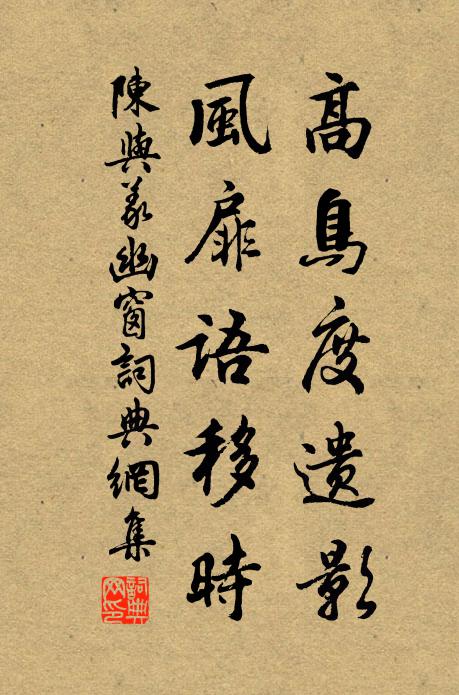 高鳥度遺影
風扉語移時
陳與義幽窗詞典網集
詞典网印